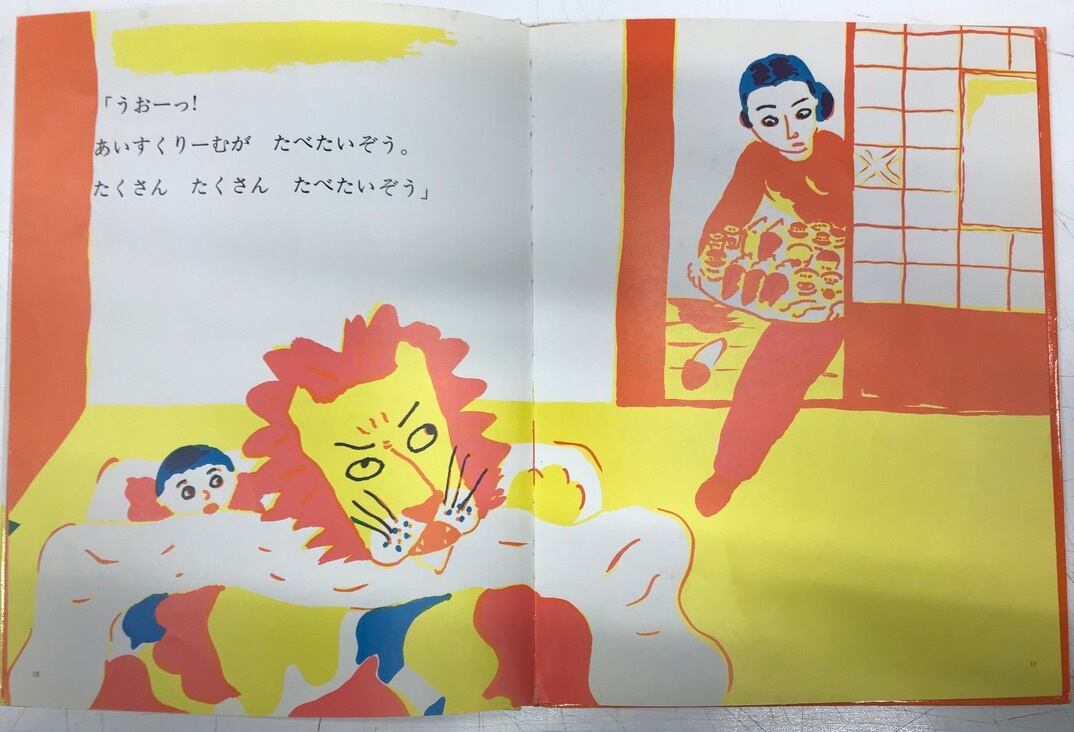 「うおーっ!
あいすくりーむが　たべたいぞう。
たくさん　たくさん　たべたいぞう」
10
11